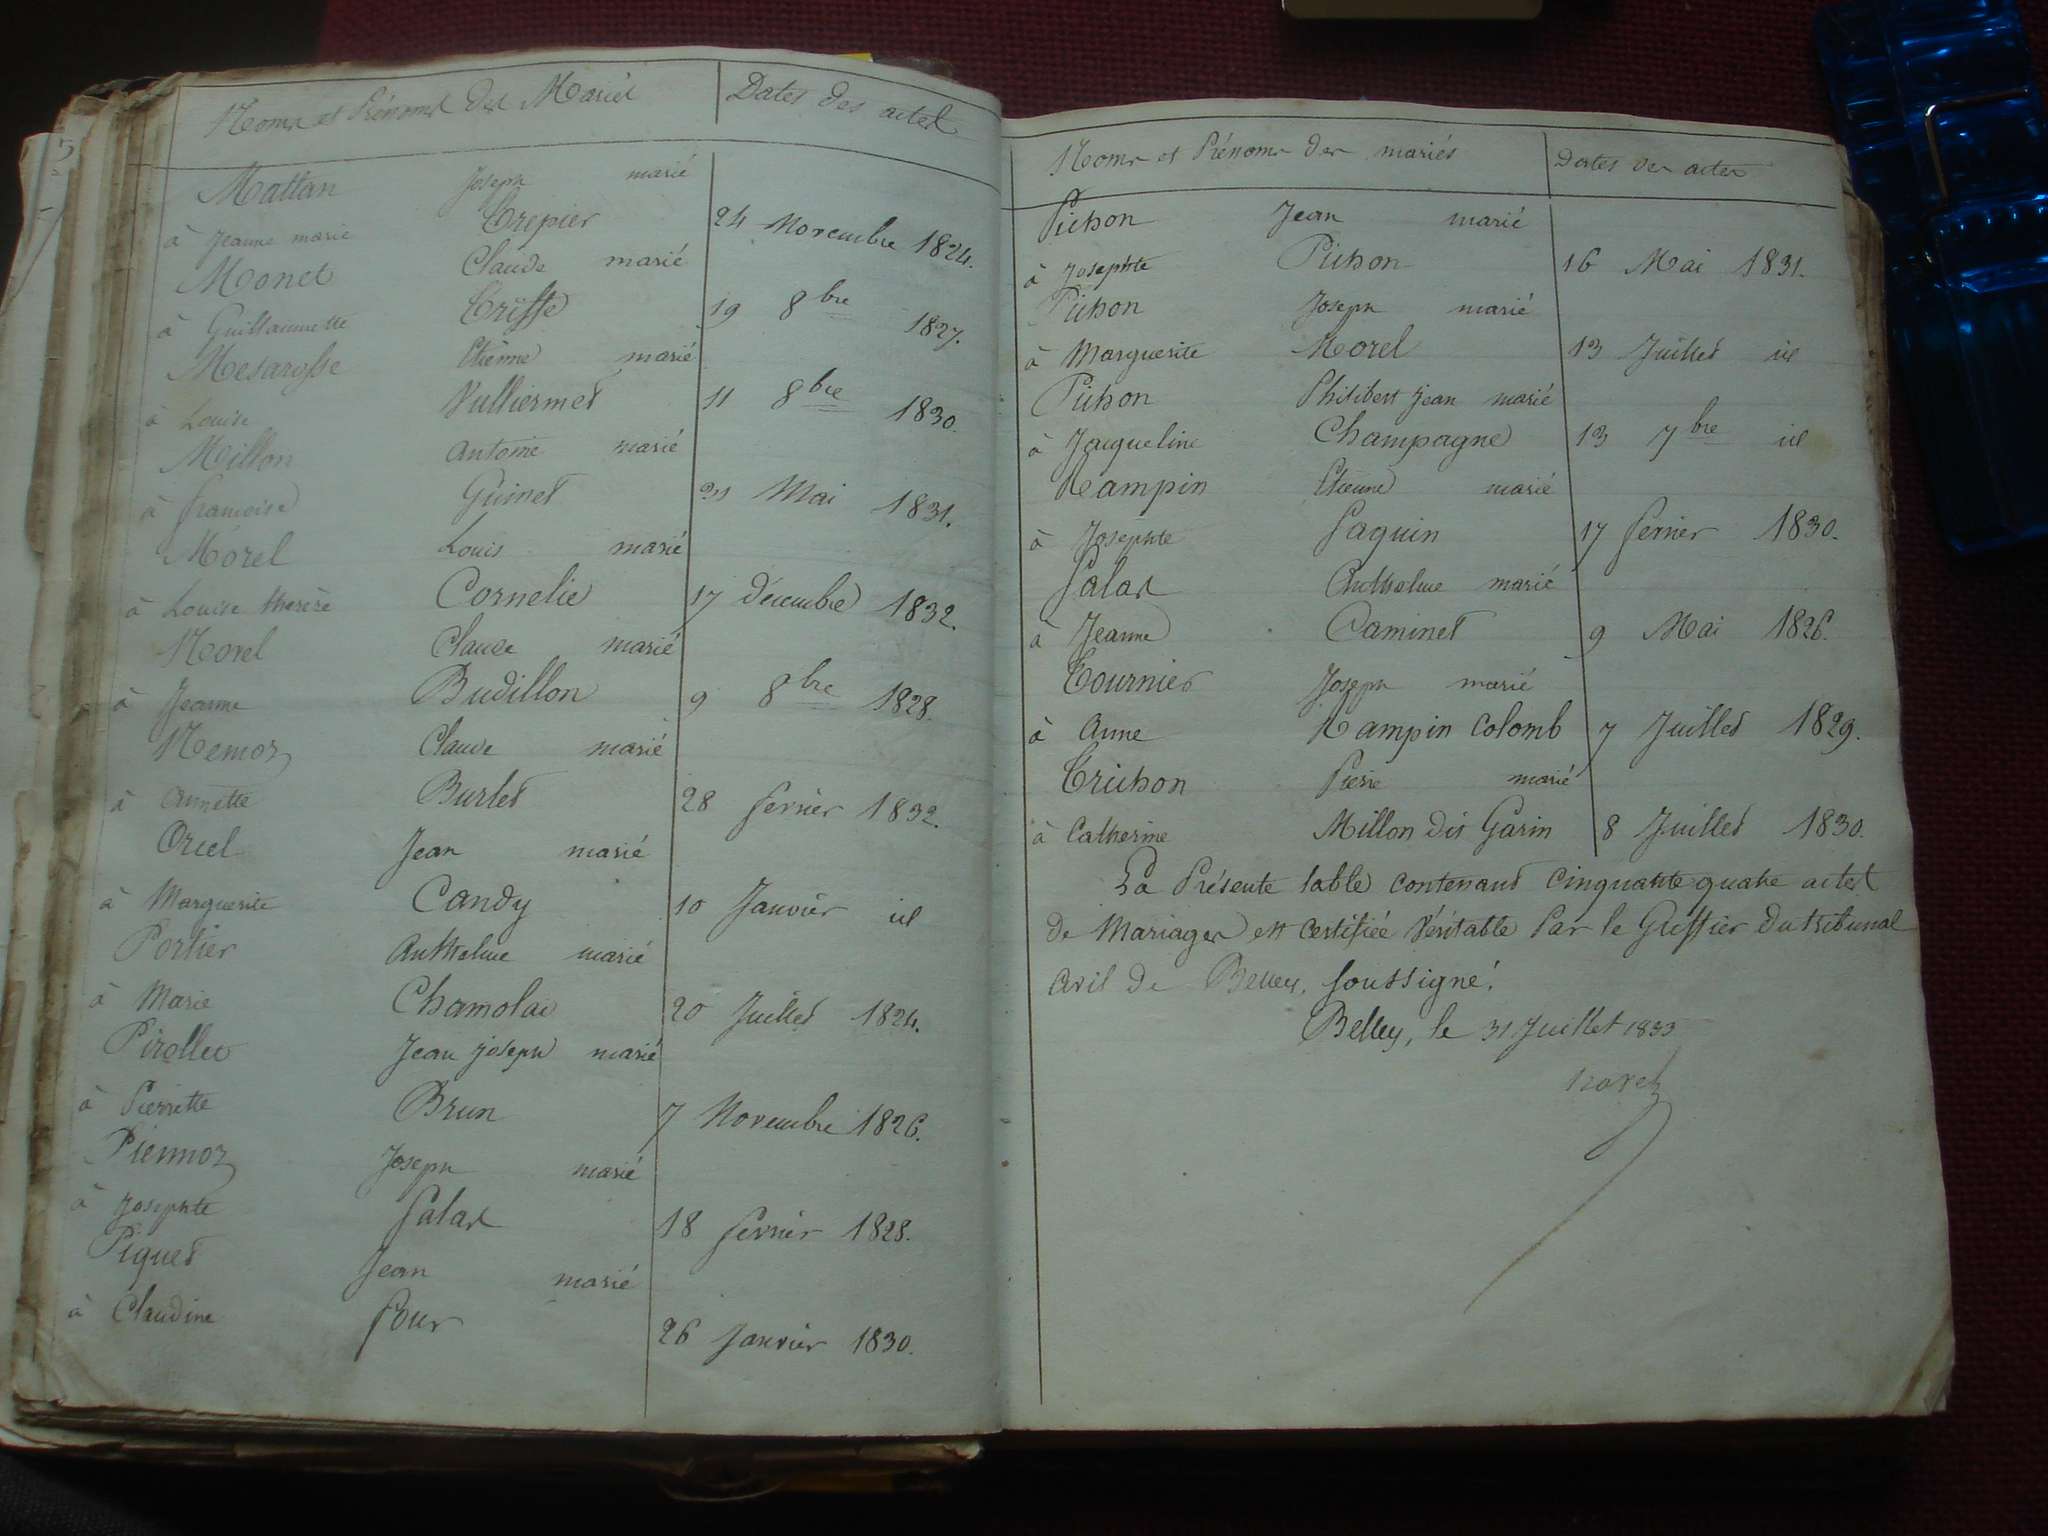 Noms et Prénoms des Mariés Dates des actes
Mattan Joseph marié
à Jeanne marie Crepier 24 Novembre 1824.
Monet Claude marié
à Guillaumette Triffe 19 8bre 1827.
Mesarosse Etienne marié
à Louise Vulliermet 11 8bre 1830.
Millon Antoine marié
à françoise Guinet 31 Mai 1831.
Morel Louis marié
à Louise therèse Cornelie 17 décembre 1832.
Morel Claude marié
à Jeanne Budillon 9 8bre 1828.
Nemoz Claude marié
à Annette Burlet 28 fevrier 1832.
Orcel Jean marié
à Marguerite Candy 10 Janvier id
Portier Anthelme marié
à Marie Chamolai 20 Juillet 1824.
Pirollet Jean joseph marié
à Pierrette Brun 7 Novembre 1826.
Piemoz Joseph marié
à Josephte Salas 18 fevrier 1828.
Piquet Jean marié
à Claudine four 26 Janvier 1830.
Noms et Prénoms des mariés Dates des actes
Pichon Jean marié
à Josephte Pichon 16 Mai 1831.
Pichon Joseph marié
à Marguerite Morel 13 Juillet id
Pichon Philibert Jean marié
à Jacqueline Champagne 13 7bre id
Rampin Etienne marié
à Josephte Paquin 17 fevrier 1830.
Salas Anthelme marié
à Jeanne Caminet 9 Mai 1826.
Tournier Joseph marié
à Anne Rampin Colomb 7 Juillet 1829.
Trichon Pierre marié
à Catherine Millon dit Garin 8 Juillet 1830.
La Présente table contenant cinquante quatre actes
de Mariages est certifiée Véritable Par le Greffier du tribunal
civil de Belley, soussigné.
Belley, le 31 Juillet 1833